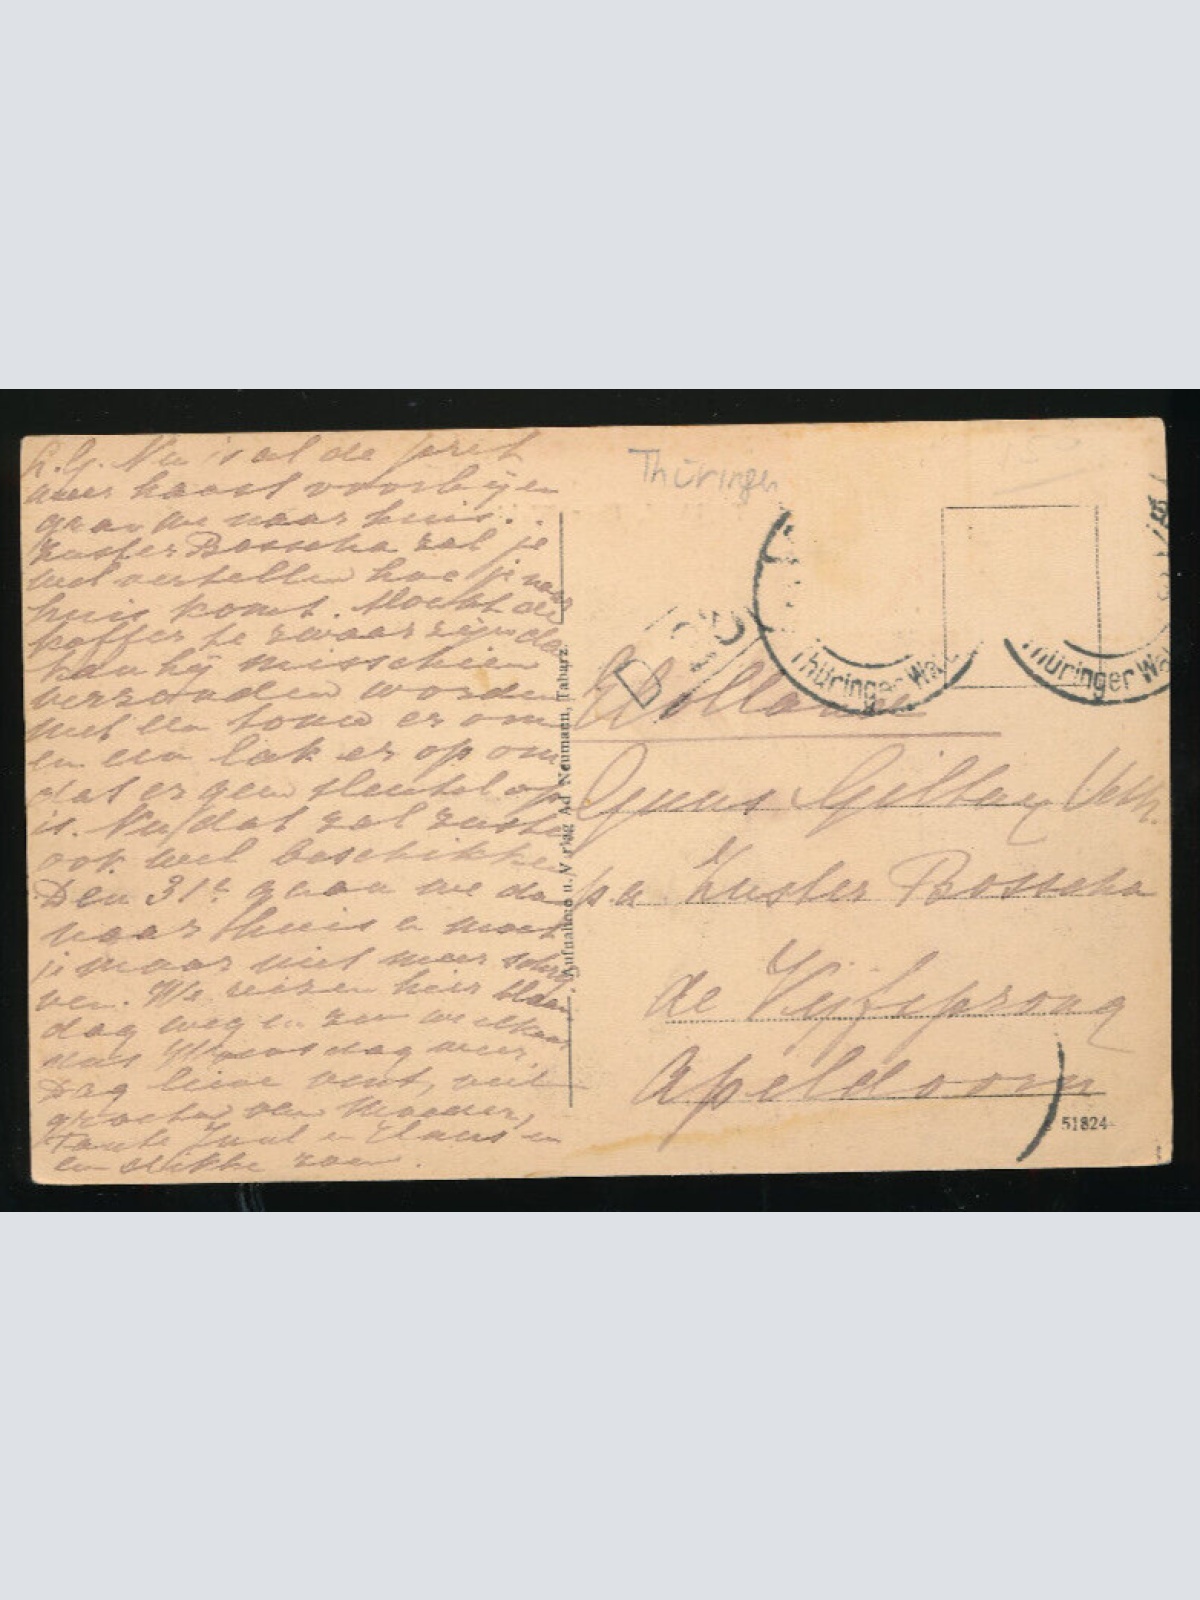 L.G. Nu is al de pret
weer haast voorbij en
gaan we naar huis.
Zuster Bosscha zal je
wel vertellen hoe je naar
huis komt. Mocht de
koffer te zwaar zijn dan
kan hij misschien
verzonden worden
met een touw er om
en een lak er op om
dat er geen sleutel op
is. Nu dat zal zuster
ook wel beschikken
Den 31e gaan we dan
naar huis en moet
je maar niet meer schrij
ven. We reizen hier Maan
dag weg en zien we elkaar
dus Woensdag weer.
Dag lieve vent, veel
groeten van Moeder,
Tante Juul en Claus en
een dikke zoen.
Aufnahme u. Verlag Ad Neumann, Tabarz.
Thüringen
Thüringer Wald
Thüringer Wa
Holland
Guus Gilbay Veth.
p.a. Zuster Bosscha
de Vijfsprong
Apeldoorn
51824